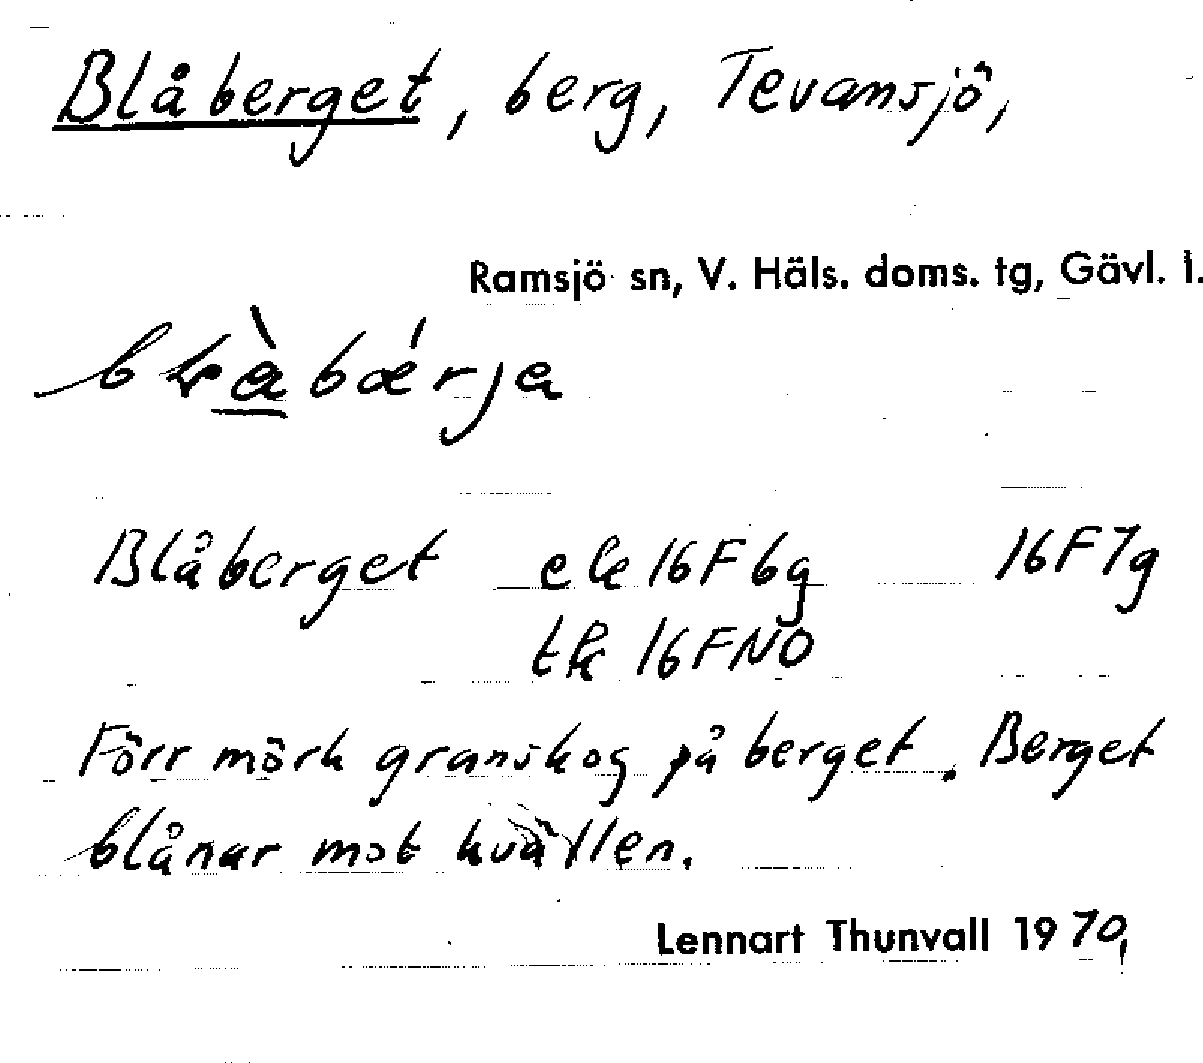 Blåberget, berg, Tevansjö,
Ramsjö sn, V. Häls. doms. tg, Gävl. l.
Blåberget ek 16F6g 16F7g
tk 16FNO
Förr mörk granskog på berget. Berget
blånar mot kvällen.
Lennart Thunvall 1970,